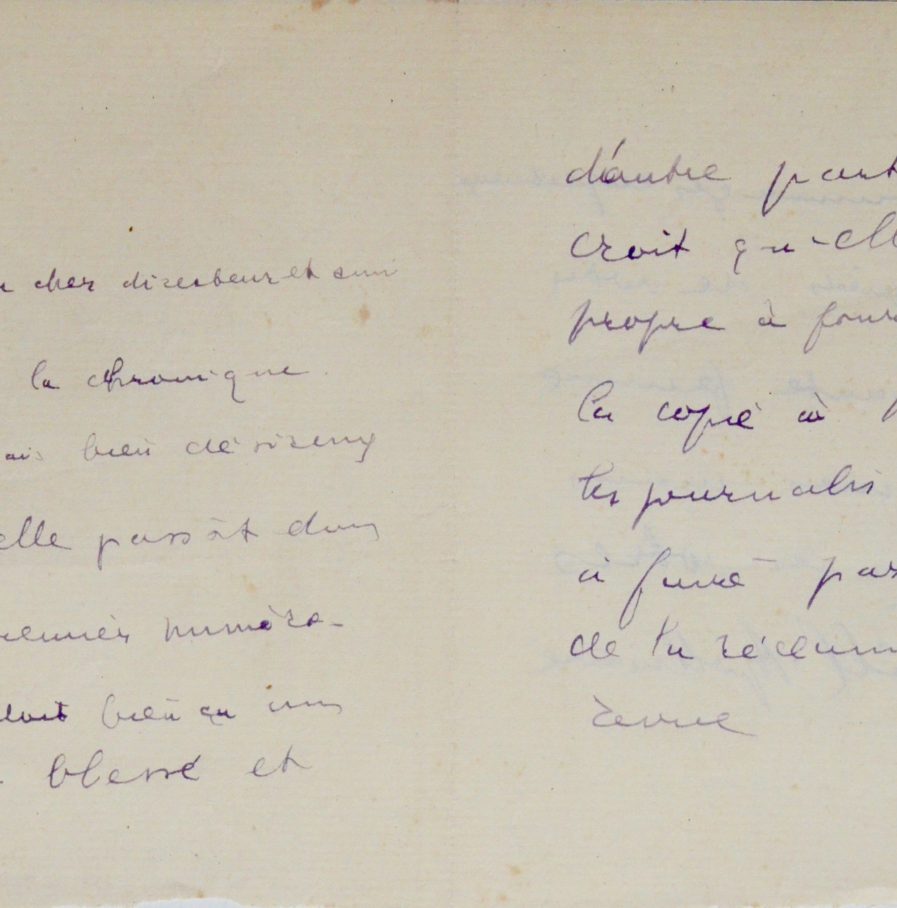 cher directeur et ami
la chronique
bien désireux
elle passât dans
premier numéro
doit bien ça
blessé et
d'autre part
croit qu'elle
propre à
la copie à
les journalis
à faire par
de la réclam
revue